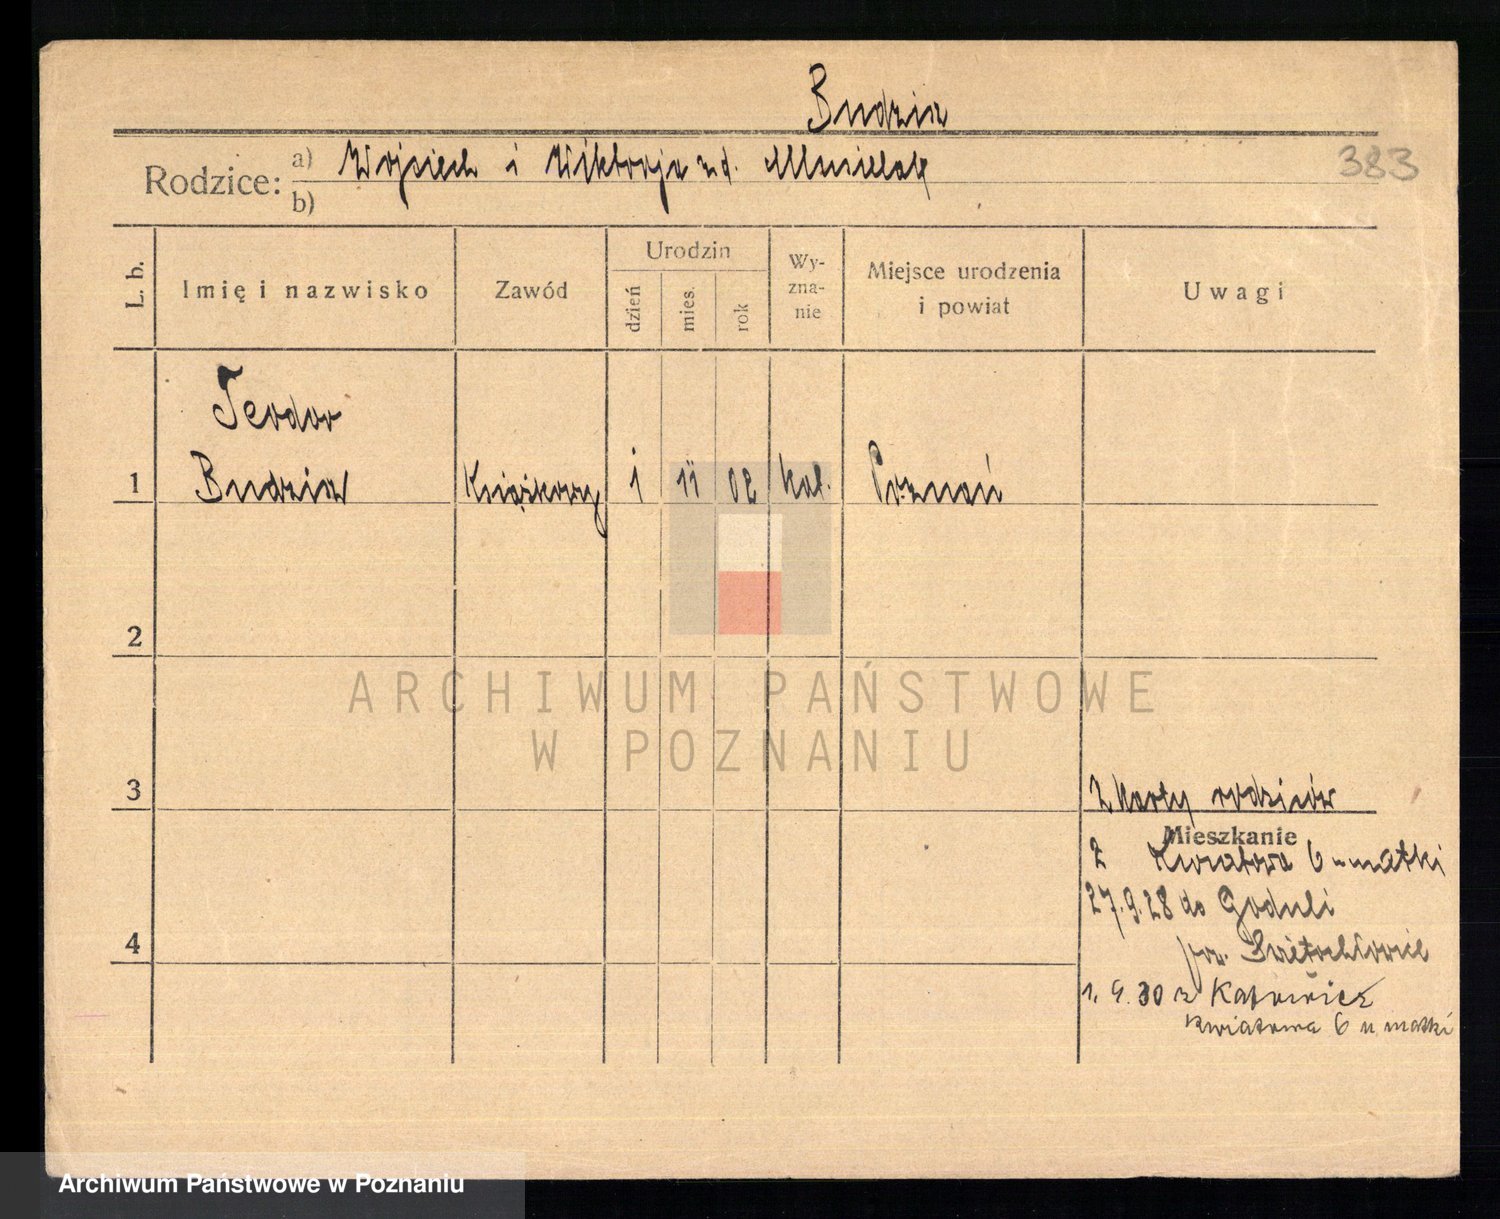 Budzin
Rodzice: a) Wojciech i Wiktorja zd.
b)
383
L. b.
Imię i nazwisko
Zawód
Urodzin
dzień
mies.
rok
Wy-
zna-
nie
Miejsce urodzenia
i powiat
Uwagi
Teodor
1 Budzin Książkowy 1 11 02 kat. Poznań
2
ARCHIWUM PAŃSTWOWE
W POZNANIU
3
Z karty rodziców
Mieszkanie
2 Kwiatowa 6 u matki
27.9.28 do Goduli
pow. Świętochłowice
4
1. 9. 30 z Katowice
Kwiatowa 6 u matki
Archiwum Państwowe w Poznaniu